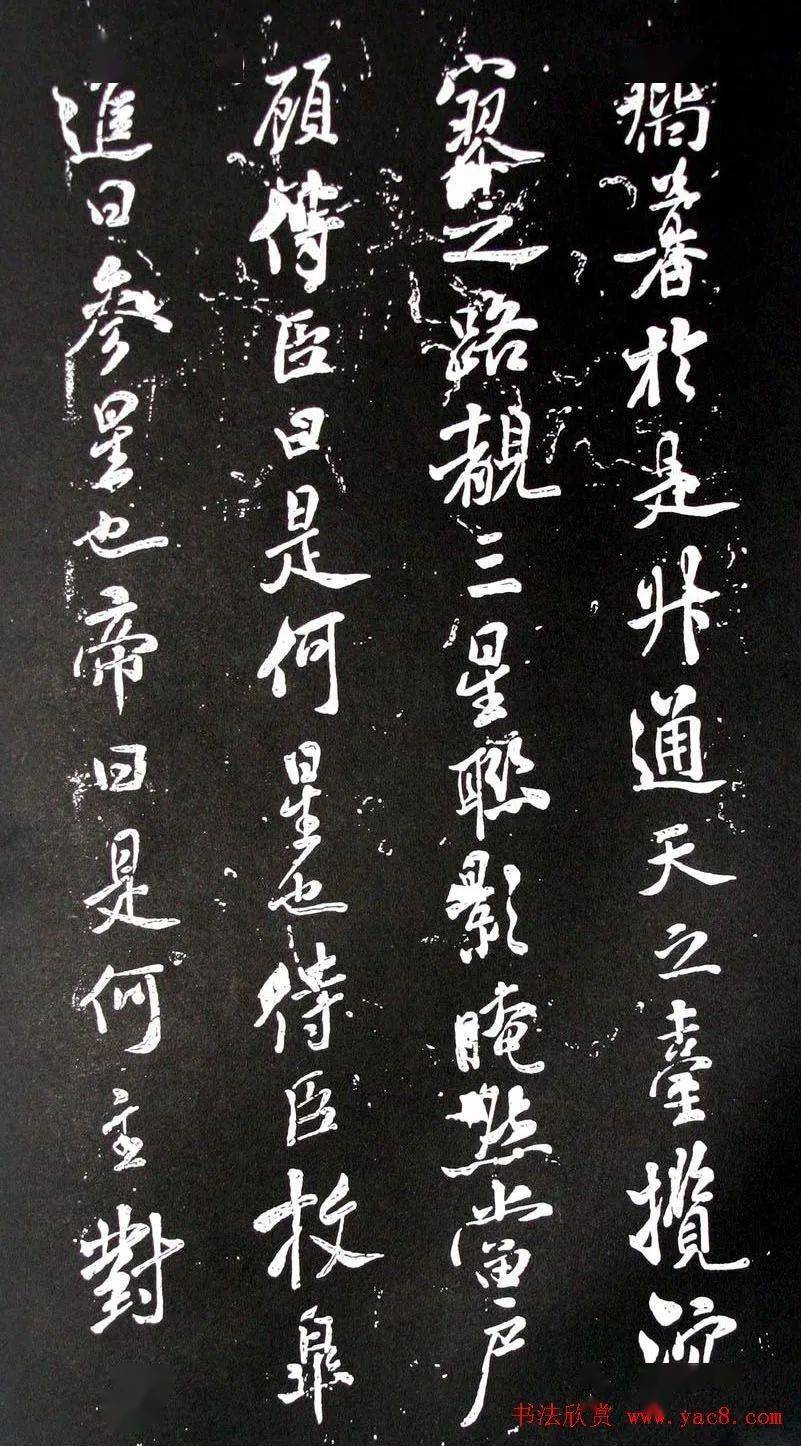 於是升通天之臺攬泬
寥之路覩三星聯影晻然當戶
顧侍臣曰是何星也侍臣枚皋
進曰參星也帝曰是何主對
书法欣赏 www.yac8.com